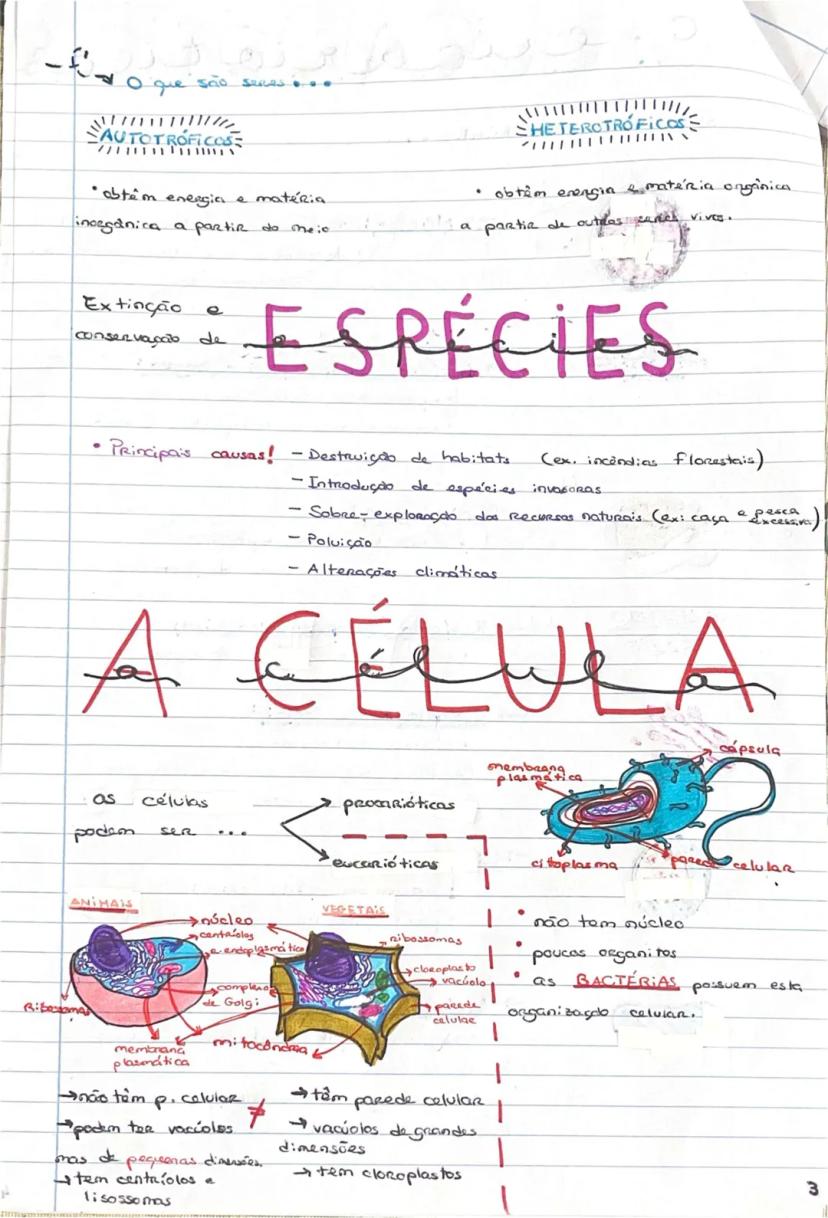 O que são seres...
AUTOTRÓFICOS
HETEROTRÓFICOS
• obtêm energia e matéria
inorgânica a partir do meio
• obtêm energia e matéria orgânica
a partir de outros seres vivos.
Extinção e
conservação de
ESPÉCIES
espécies
• Principais causas!
- Destruição de habitats (ex. incêndias florestais)
- Introdução de espécies invasoras
- Sobre-exploração dos recursos naturais (ex: caça e pesca excessiva)
- Poluição
- Alterações climáticas
A CÉLULA
a célula
as células
podem ser ...
procarióticas
eucarióticas
membrana
plasmática
cápsula
citoplasma
parede celular
• não tem núcleo
• poucos organitos
• as BACTÉRIAS possuem esta
organização celular.
ANIMAIS
VEGETAIS
núcleo
centríolos
R. endoplasmático
complexo
de Golgi
Ribossomas
membrana
plasmática
mitocôndria
ribossomas
cloroplasto
vacúolo
parede
celular
→ não têm p. celular
→ podem ter vacúolos
mas de pequenas dimensões.
→ tem centríolos e
lisossomas
≠
→ têm parede celular
→ vacúolos de grandes
dimensões
→ tem cloroplastos
3